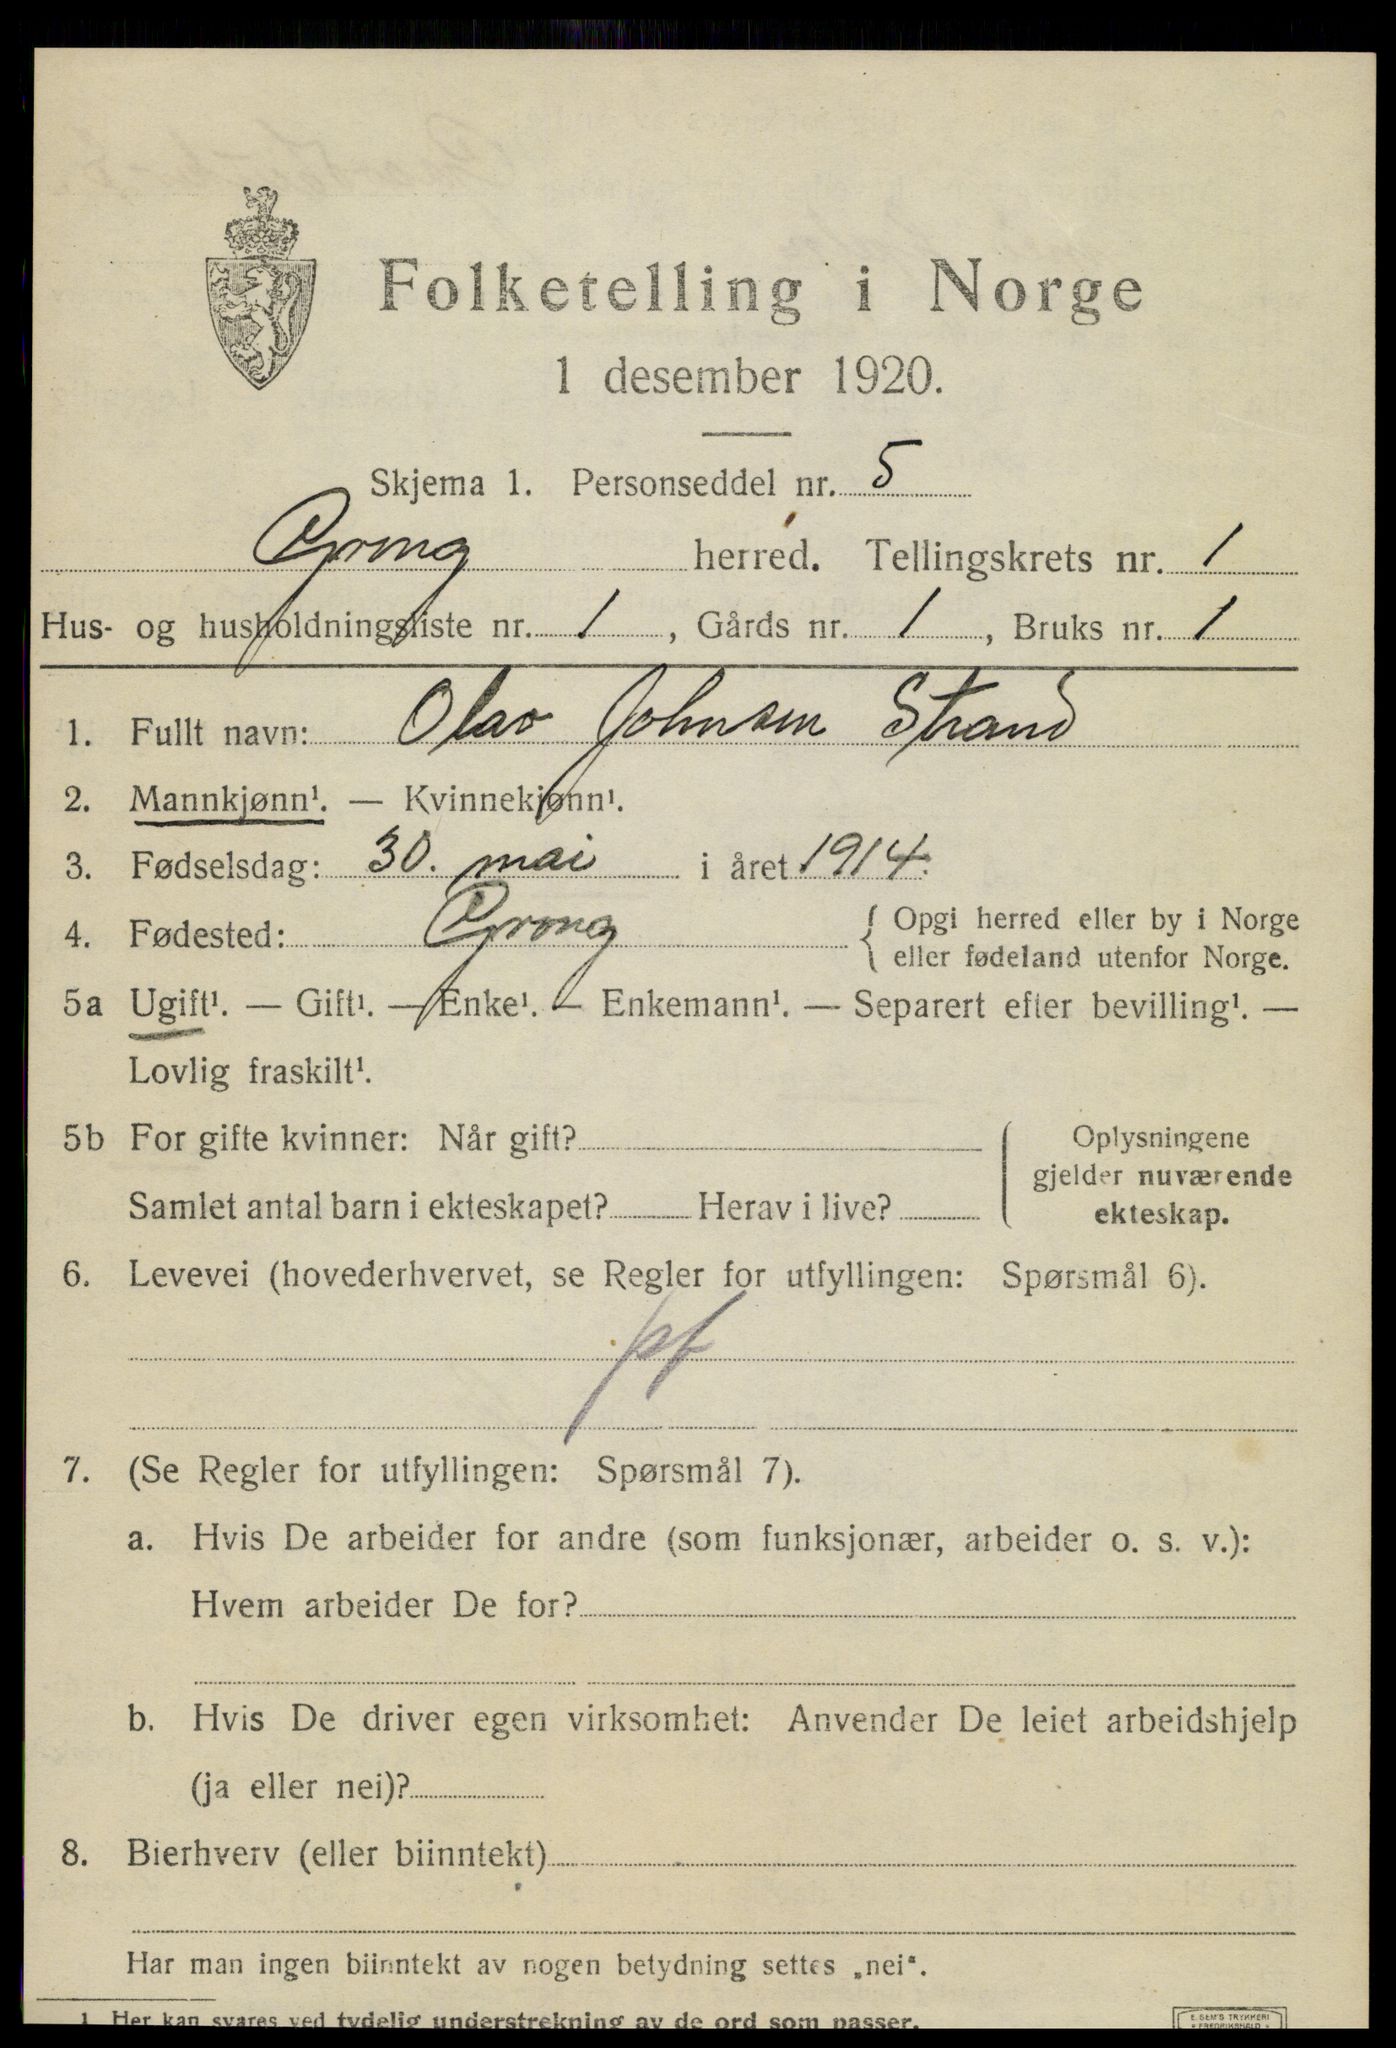 Folketelling i Norge
1 desember 1920.
Skjema 1. Personseddel nr. 5
Grong herred. Tellingskrets nr. 1
Hus- og husholdningsliste nr. 1, Gårds nr. 1, Bruks nr. 1
1. Fullt navn: Olav Johnsen Strand
2. Mannkjønn¹. — Kvinnekjønn¹.
3. Fødselsdag: 30. mai i året 1914.
4. Fødested: Grong { Opgi herred eller by i Norge
eller fødeland utenfor Norge.
5a Ugift¹. — Gift¹. — Enke¹. — Enkemann¹. — Separert efter bevilling¹. —
Lovlig fraskilt¹.
5b For gifte kvinner: Når gift?
Samlet antal barn i ekteskapet? Herav i live?
Oplysningene
gjelder nuværende
ekteskap.
6. Levevei (hovederhvervet, se Regler for utfyllingen: Spørsmål 6).
pf
7. (Se Regler for utfyllingen: Spørsmål 7).
a. Hvis De arbeider for andre (som funksjonær, arbeider o. s. v.):
Hvem arbeider De for?
b. Hvis De driver egen virksomhet: Anvender De leiet arbeidshjelp
(ja eller nei)?
8. Bierhverv (eller biinntekt)
Har man ingen biinntekt av nogen betydning settes „nei".
1. Her kan svares ved tydelig understrekning av de ord som passer.
E. SEM'S TRYKKERI
FREDRIKSHALD